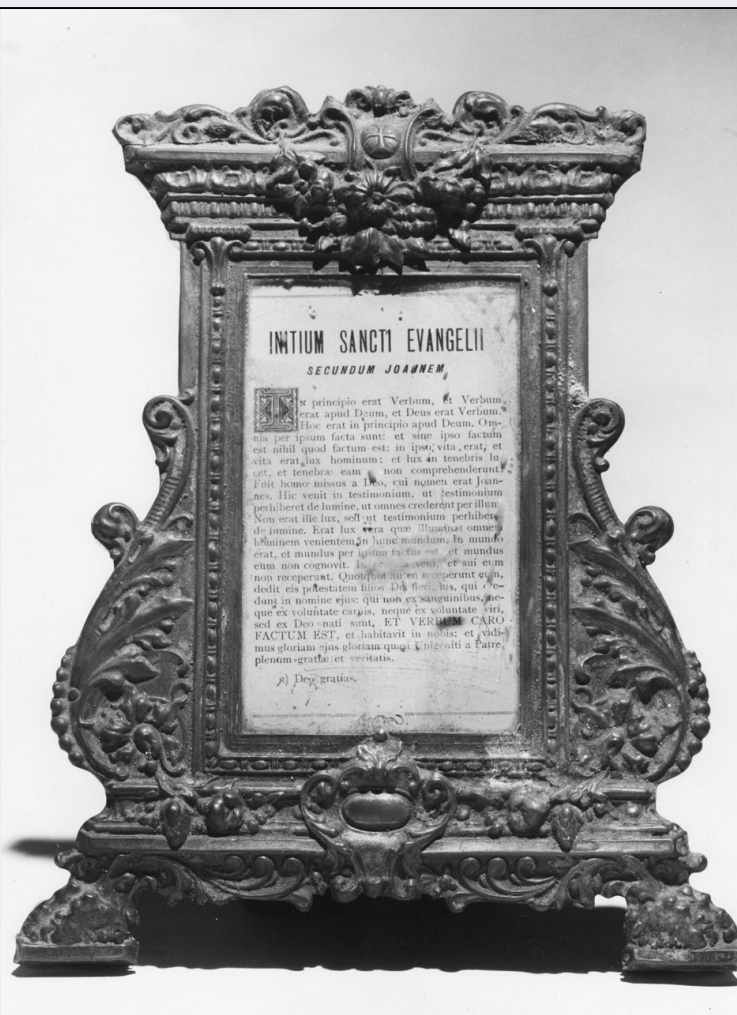 INITIUM SANCTI EVANGELII
SECUNDUM JOANNEM
IN principio erat Verbum, et Verbum
erat apud Deum, et Deus erat Verbum.
Hoc erat in principio apud Deum. Om-
nia per ipsum facta sunt: et sine ipso factum
est nihil quod factum est: in ipso vita erat, et
vita erat lux hominum: et lux in tenebris lu
cet, et tenebræ eam non comprehenderunt
Fuit homo missus a Deo, cui nomen erat Joan-
nes. Hic venit in testimonium, ut testimonium
perhiberet de lumine, ut omnes crederent per illum
Non erat ille lux, sed ut testimonium perhiberet
de lumine. Erat lux vera quæ illuminat omnem
hominem venientem in hunc mundum. In mundo
erat, et mundus per ipsum factus est et mundus
eum non cognovit. In veni et sui eum
non receperunt. Quotquot autem receperunt eum,
dedit eis potestatem filios Dei fieri, his, qui cre-
dunt in nomine ejus: qui non ex sanguinibus, ne-
que ex voluntate carnis, neque ex voluntate viri,
sed ex Deo nati sunt, ET VERBUM CARO
FACTUM EST, et habitavit in nobis: et vidi-
mus gloriam ejus gloriam quasi Unigeniti a Patre,
plenum gratiæ et veritatis.
R) Deo gratias.